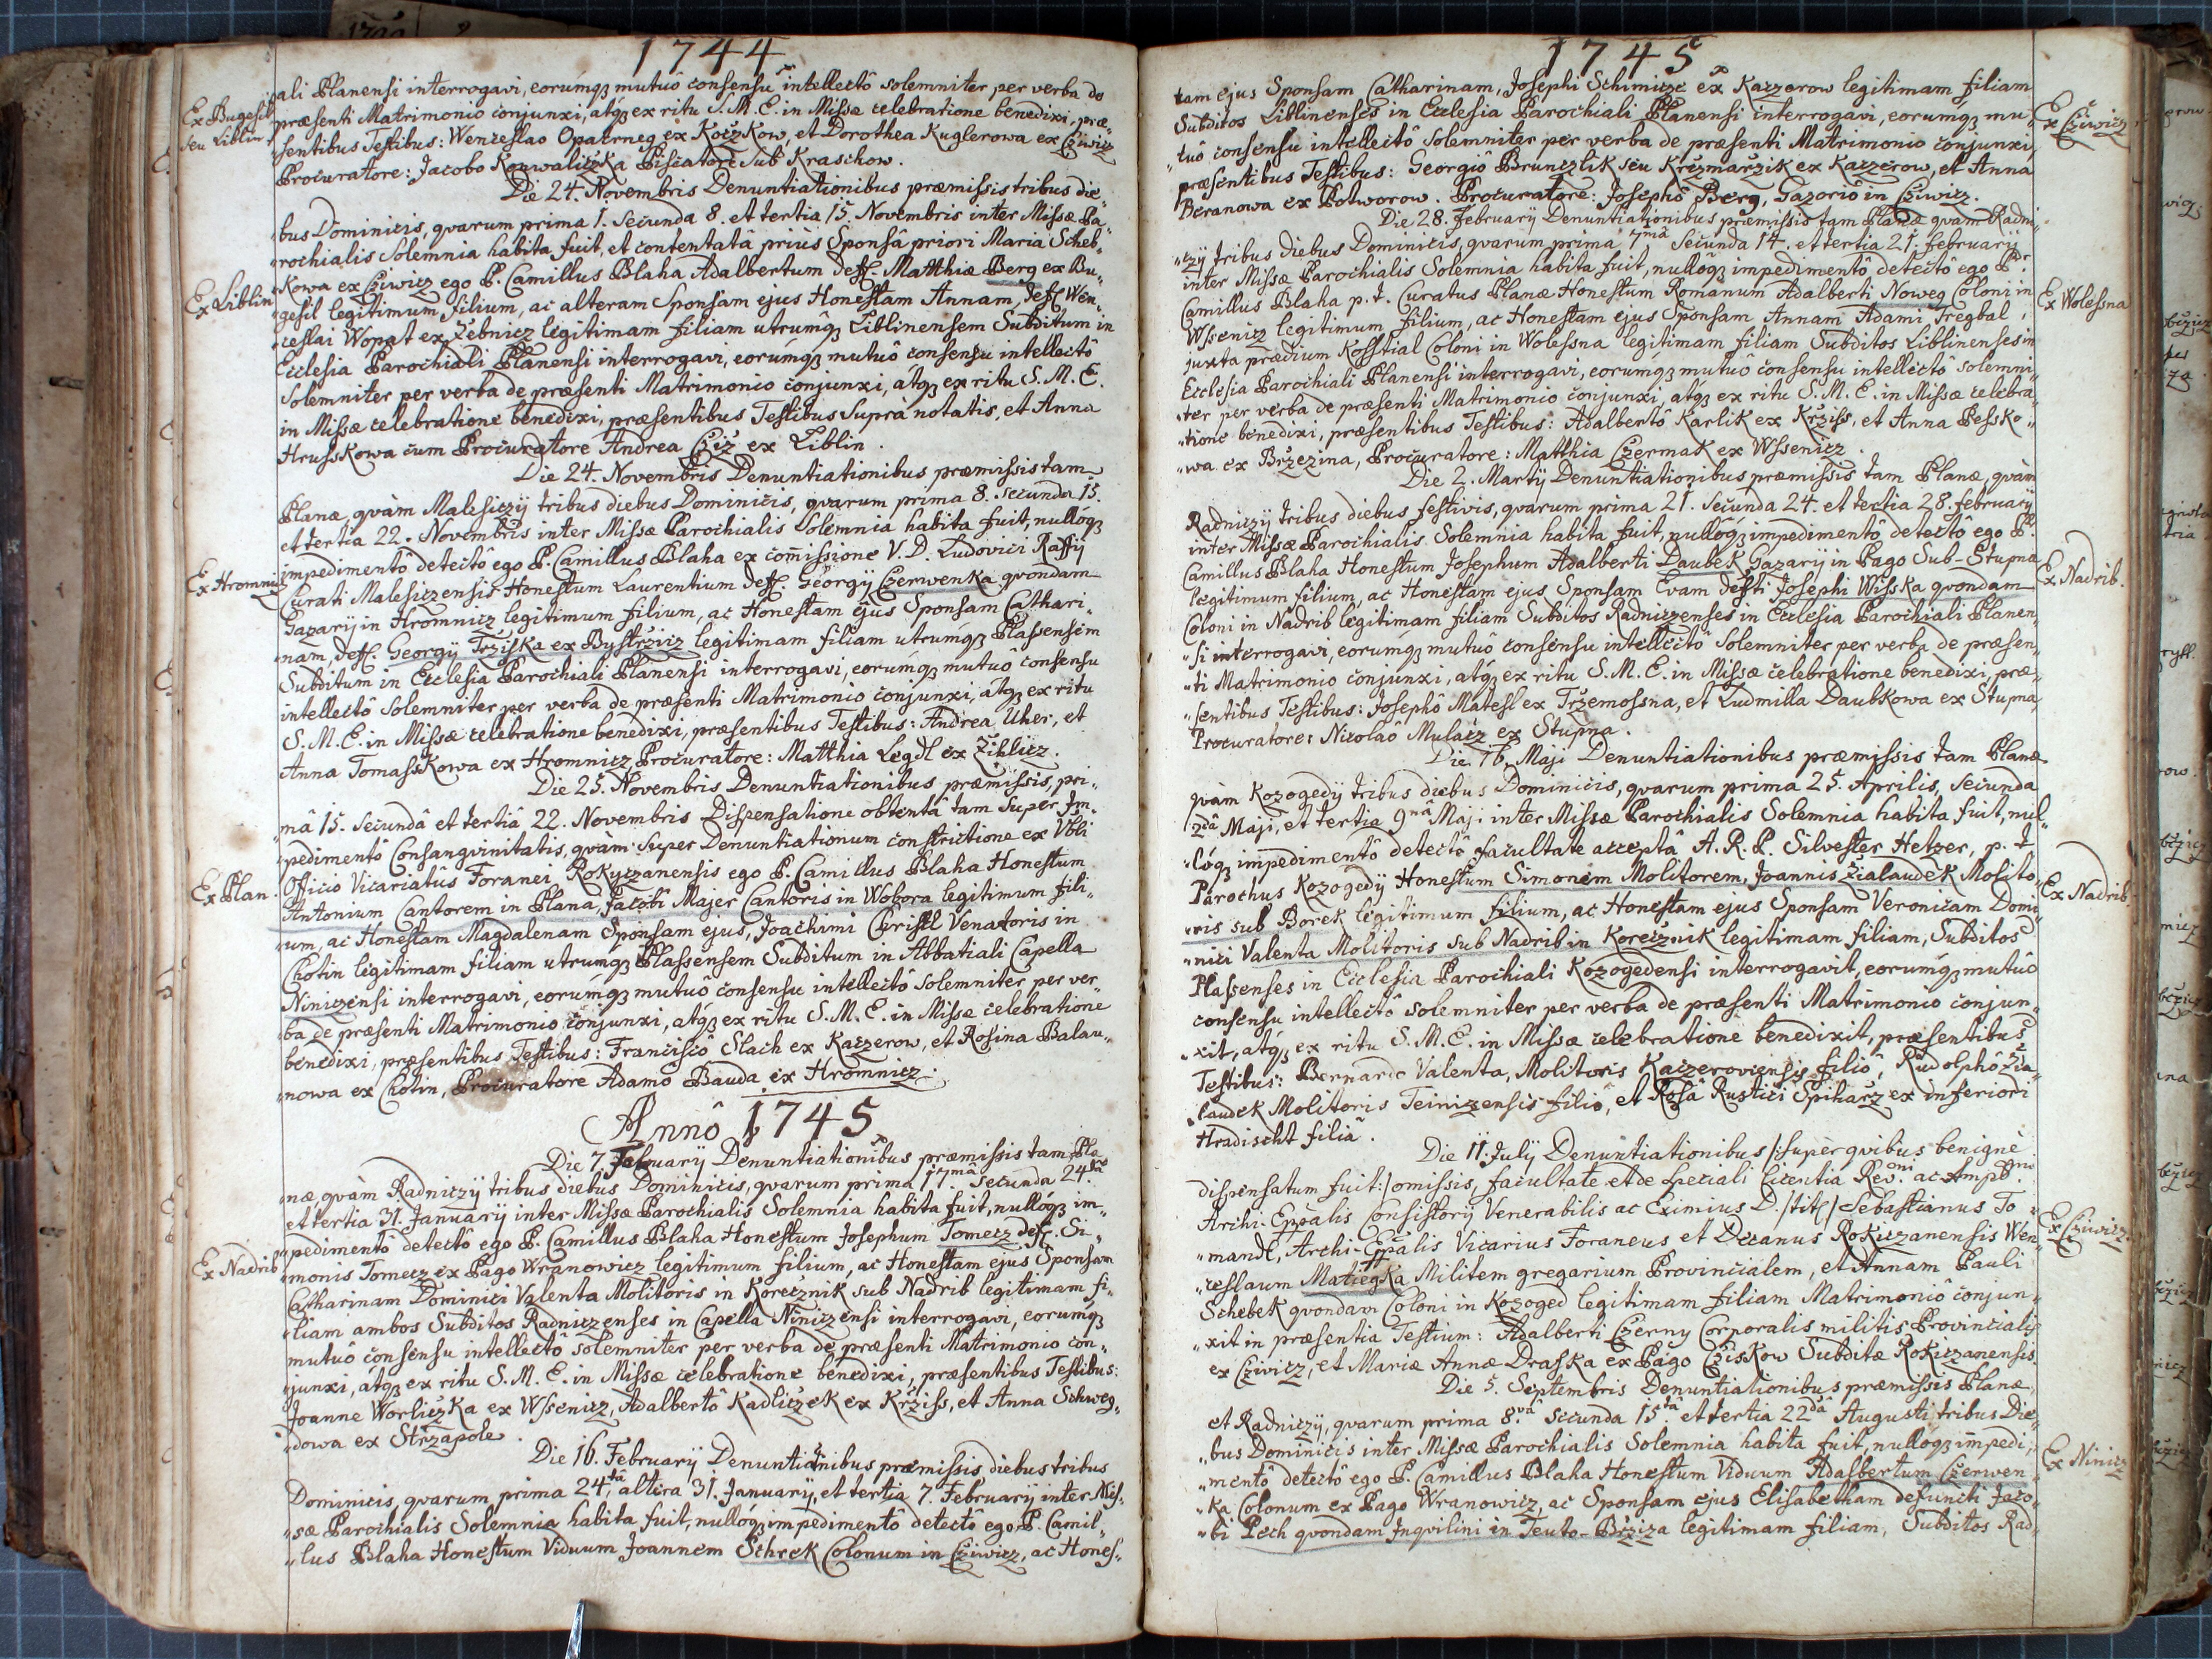 1744
pali Planensi interrogavi, eorúmq3 mutuô consensu intellectô solemniter, per verba de
Ex Bugesil
seu Liblin
præsenti Matrimonio conjunxi, atq3 ex ritu S. M. E. in Missæ celebratione benedixi, præ„
„sentibus Testibus: Wenceslao Opatrneg ex Koczkow, et Dorothea Kuglerowa ex Cziwicz
Procuratore: Jacobo Kauwaliczka Piscatore sub Kraschow.
Die 24. Novembris Denuntiationibus præmissis tribus die„
„bus Dominicis, qvarum prima 1. Secunda 8. et tertia 15. Novembris inter Missæ Pa„
„rochialis Solemnia habita fuit, et contentatâ priùs Sponsâ priori Maria Scheb„
„Kowa ex Cziwicz ego P. Camillus Blaha Adalbertum deff. Matthiæ Berg ex Bu„
Ex Liblin
„gesil legitimum filium, ac alteram Sponsam ejus Honestam Annam, deff. Wen„
„ceslai Wopat ex Žebnicz legitimam filiam utrumq3 Liblinensem Subditum in
Ecclesia Parochiali Planensi interrogavi, eorúmq3 mutuô consensu intellectô
Solemniter per verba de præsenti Matrimonio conjunxi, átq3 ex ritu S. M. E.
in Missæ celebratione benedixi, præsentibus Testibus Suprà notatis, et Anna
Hrusskowa cum Procuratore Andrea Cziž ex Liblin.
Die 24. Novembris Denuntiationibus præmissis tam
Planæ, qvàm Malesiczij tribus diebus Dominicis, qvarum prima 8. Secunda 15.
et tertia 22. Novembris inter Missæ Parochialis Solemnia habita fuit, nullóq3
impedimentô detectô ego P. Camillus Blaha ex com̄issione V. D. Ludovici Raffij
Ex Hromnicz
Curati Malesiczensis Honestum Laurentium deff. Georgij Czerwenka qvondam
Gazarij in Hromnicz legitimum filium, ac Honestam ejus Sponsam Cathari„
„nam, deff. Georgij Tržiska ex Bystržicz legitimam filiam utrúmq3 Plassensem
Subditum in Ecclesia Parochiali Planensi interrogavi, eorúmq3 mutuô consensu
intellectô Solemniter per verba de præsenti Matrimonio conjunxi, átq3 ex ritu
S. M. E. in Missæ celebratione benedixi, præsentibus Testibus: Andrea Uher, et
Anna Tomasskowa ex Hromnicz Procuratore: Matthia Legdl ex Žiklicz.
Die 25. Novembris Denuntiationibus præmissis, pri„
„mâ 15. Secundâ et tertiâ 22. Novembris Dispensatione obtentâ tam super Im„
„pedimentô Consangvinitatis, qvàm Super Denuntiationum constrictione ex Vbli
Officio Vicariatûs Foranei Rokyczanensis ego P. Camillus Blaha Honestum
Ex Plan.
Antonium Cantorem in Plana, Jacobi Majer Cantoris in Wobora legitimum fili„
„um, ac Honestam Magdalenam Sponsam ejus, Joachimi Christl Venatoris in
Chotin legitimam filiam utrumq3 Plassensem Subditum in Abbatiali Capella
Niniczensi interrogavi, eorúmq3 mutuô consensu intellectô Solemniter per ver„
„ba de præsenti Matrimonio conjunxi, átq3 ex ritu S. M. E. in Missæ celebratione
benedixi, præsentibus Testibus: Franciscô Slach ex Kaczerow, et Rosina Balau„
„nowa ex Chotin, Procuratore Adamô Bauda ex Hromnicz.
Annô 1745
Die 7. Februarij Denuntiationibus præmissis tam Pla
næ qvàm Radniczij tribus diebus Dominicis, qvarum prima 17mâ Secunda 24ta
et tertia 31. Januarij inter Missæ Parochialis Solemnia habita fuit, nullóq3 im„
„pedimentô detectô ego P. Camillus Blaha Honestum Josephum Tomecz deff. Si„
Ex Nadrib
„monis Tomecz ex Pago Wranowicz legitimum filium, ac Honestam ejus Sponsam
Catharinam Dominici Valenta Molitoris in Korecznik sub Nadrib legitimam fi„
„liam ambos Subditos Radniczenses in Capella Niniczensi interrogavi, eorumq3
mutuô consensu intellectô solemniter per verba de præsenti Matrimonio con„
„junxi, átq3 ex ritu S. M. E. in Missæ celebratione benedixi, præsentibus Testibus:
Joanne Worliczka ex Wssenicz, Adalbertô Kadliczek ex Kržiss, et Anna Schweg„
„dowa ex Stržapole.
Die 16. Februarij Denuntiationibus præmissis diebus tribus
Dominicis, qvarum prima 24ta, altera 31. Januarij, et tertia 7. Februarij inter Mis„
„sæ Parochialis Solemnia habita fuit, nullóq3 impedimentô detectô ego P. Camil„
„lus Blaha Honestum Viduum Joannem Schrek Colonum in Cziwicz, ac Hones„
1745
tam ejus Sponsam Catharinam, Josephi Schimicze ex Kaczerow legitimam filiam
Ex Cziwicz
Subditos Liblinenses in Ecclesia Parochiali Planensi interrogavi, eorúmq3 mu„
„tuô consensu intellectô Solemniter per verba de præsenti Matrimonio conjunxi,
præsentibus Testibus: Georgiô Brunczlik seu Kržmaržik ex Kaczerow, et Anna
Beranowa ex Potworow. Procuratore: Josephô Berg, Gazoriô in Cziwicz.
Die 28. Februarij Denuntiationibus præmissis tam Planæ qvàm Radni„
„czij tribus diebus Dominicis, qvarum prima 7mâ Secunda 14. et tertia 21. Februarij
inter Missæ Parochialis Solemnia habita fuit, nullôq3 impedimentô detectô ego P.
Camillus Blaha p. t. Curatus Planæ Honestum Romanum Adalberti Noweg Coloni in
Ex Wolessna
Wssenicz legitimum filium, ac Honestam ejus Sponsam Annam Adami Tregbal,
juxta prædium Kosstial Coloni in Wolessna legitimam filiam Subditos Liblinenses in
Ecclesia Parochiali Planensi interrogavi, eorúmq3 mutuô consensu intellectô solemni„
„ter per verba de præsenti Matrimonio conjunxi, átq3 ex ritu S. M. E. in Missæ celebra„
„tione benedixi, præsentibus Testibus: Adalbertô Karlik ex Kržiss, et Anna Pessko„
„wa ex Bržezina, Procuratore: Matthia Czermak ex Wssenicz.
Die 2. Martij Denuntiationibus præmissis tam Planæ, qvàm
Radniczij tribus diebus festivis, qvarum prima 21. Secunda 24. et tertia 28. Februarij
inter Missæ Parochialis Solemnia habita fuit, nullôq3 impedimentô detectô ego P.
Camillus Blaha Honestum Josephum Adalberti Daubek Gazarij in Pago Sub-Stupna
Ex Nadrib.
legitimum filium, ac Honestam ejus Sponsam Evam deffti Josephi Wisska qvondam
Coloni in Nadrib legitimam filiam Subditos Radniczenses in Ecclesia Parochiali Planen„
„si interrogavi, eorúmq3 mutuô consensu intellectô Solemniter per verba de præsen„
„ti Matrimonio conjunxi, atq3 ex ritu S. M. E. in Missæ celebratione benedixi, præ„
„sentibus Testibus: Josephô Matesl ex Tržemossna, et Ludmilla Daubkowa ex Stupna,
Procuratore: Nicolaô Mulacz ex Stupna.
Die 16. Maji Denuntiationibus præmissis tam Planæ
qvàm Kozogedij tribus diebus Dominicis, qvarum prima 25. Aprilis, Secunda
2dâ Maji, et tertia 9nâ Maji inter Missæ Parochialis Solemnia habita fuit, nul„
„lóq3 impedimentô detectô facultate acceptâ A. R. P. Silvester Hetzer, p. t.
Parochus Kozogedij Honestum Simonem Molitorem, Joannis Žialaudek Molito„
Ex Nadrib.
„ris sub Borek legitimum filium, ac Honestam ejus Sponsam Veronicam Domi„
„nici Valenta Molitoris sub Nadrib in Korecznik legitimam filiam, Subditos
Plassenses in Ecclesia Parochiali Kozogedensi interrogavit, eorúmq3 mutuô
consensu intellectô solemniter per verba de præsenti Matrimonio conjun„
„xit, atq3 ex ritu S. M. E. in Missæ celebratione benedixit, præsentibus
Testibus: Bernardo Valenta, Molitoris Kaczeroviensis filiô, Rudolphô Žia„
„laudek Molitoris Teinizensis filiô, et Rosâ Rustici Spiharz ex inferiori
Hradischt filiâ.
Die 11. July Denuntiationibus /:super qvibus benignè
dispensatum fuit:/ omissis, facultate et de speciali licentia Revmi ac Ampl.
Archi-Eppalis Consistorij Venerabilis ac Eximius D. /titl/ Sebastianus To„
Ex Cziwicz.
„mandl, Archi-Eppalis Vicarius Foraneus et Decanus Rokiczanensis Wen„
„ceslaum Matiegka Militem gregarium Provincialem, et Annam Pauli
Schebek qvondam Coloni in Kozoged legitimam filiam Matrimoniô conjun„
„xit in præsentia Testium: Adalberti Czerny Corporalis militis Provincialis
ex Cziwicz, et Mariæ Annæ Draska ex Pago Cziskow Subditæ Rokiczanensis.
Die 5. Septembris Denuntiationibus præmissis Planæ,
et Radniczij, qvarum prima 8vâ Secunda 15tâ et tertia 22dâ Augusti tribus Die„
„bus Dominicis inter Missæ Parochialis Solemnia habita fuit, nullóq3 impedi„
Ex Ninicz
„mentô detectô ego P. Camillus Blaha Honestum Viduum Adalbertum Czerwen„
„ka Colonum ex Pago Wranowicz, ac Sponsam ejus Elisabetham defuncti Jaco„
„bi Pech qvondam Inqvilini in Teuto-Bržiza legitimam filiam, Subditos Rad„